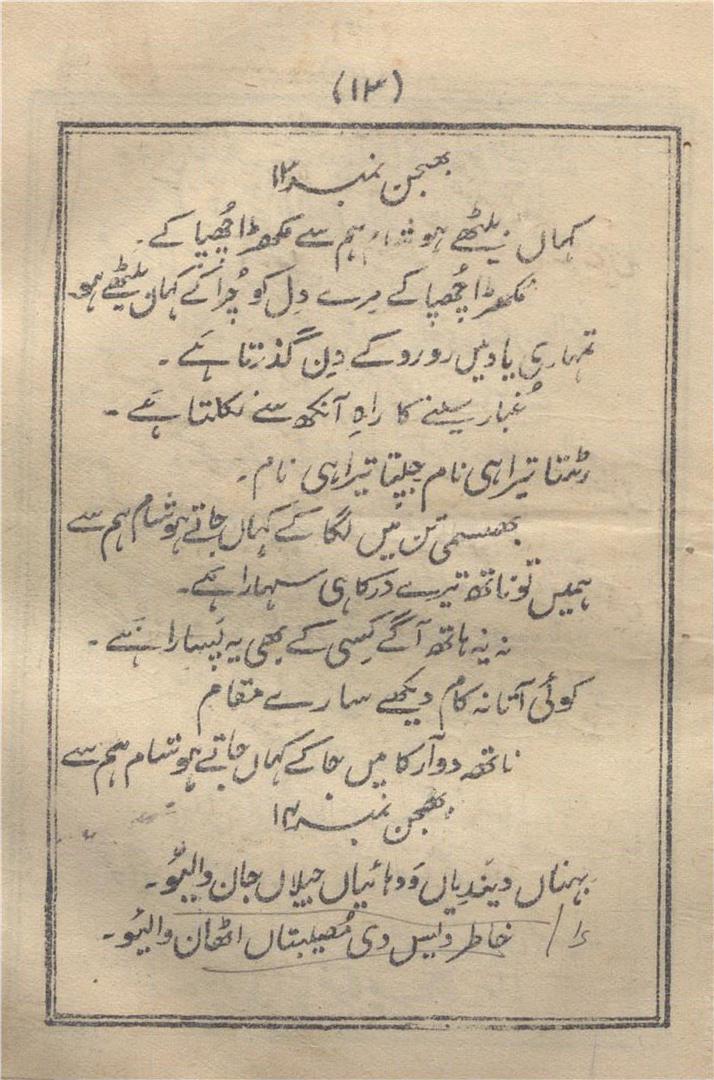 (۱۳)
بھجن نمبر ۱۳
کہاں بیٹھے ہو شام ہم سے مکھڑا چُھپا کے۔
مکھڑا چُھپا کے مرے دِل کو چُرا کے کہاں بیٹھے ہو
تمہاری یاد میں رو رو کے دِن گذرتا ہَے ۔
غُبار سینے کا راہِ آنکھ سے نکلتا ہَے ۔
رٹتا تیرا ہی نام جپتا تیرا ہی نام ۔
بھسمی تن میں لگا کے کہاں جاتے ہو شام ہم سے
ہمیں تو ناتھ تیرے در کا ہی سہارا ہَے۔
نہ یہ ہاتھ آگے کِسی کے بھی یہ پَسارا ہَے ۔
کوئی آتا نہ کام دیکھے سارے مقام
ناتھ دوآرکا میں جا کے کہاں جاتے ہو شام ہم سے
بھجن نمبر ۱۴
بہناں دیندیاں وَدہائیاں جیلاں جان والیوُ۔
خاطر دیس دی مُصیبتاں اٹھان والیوُ۔